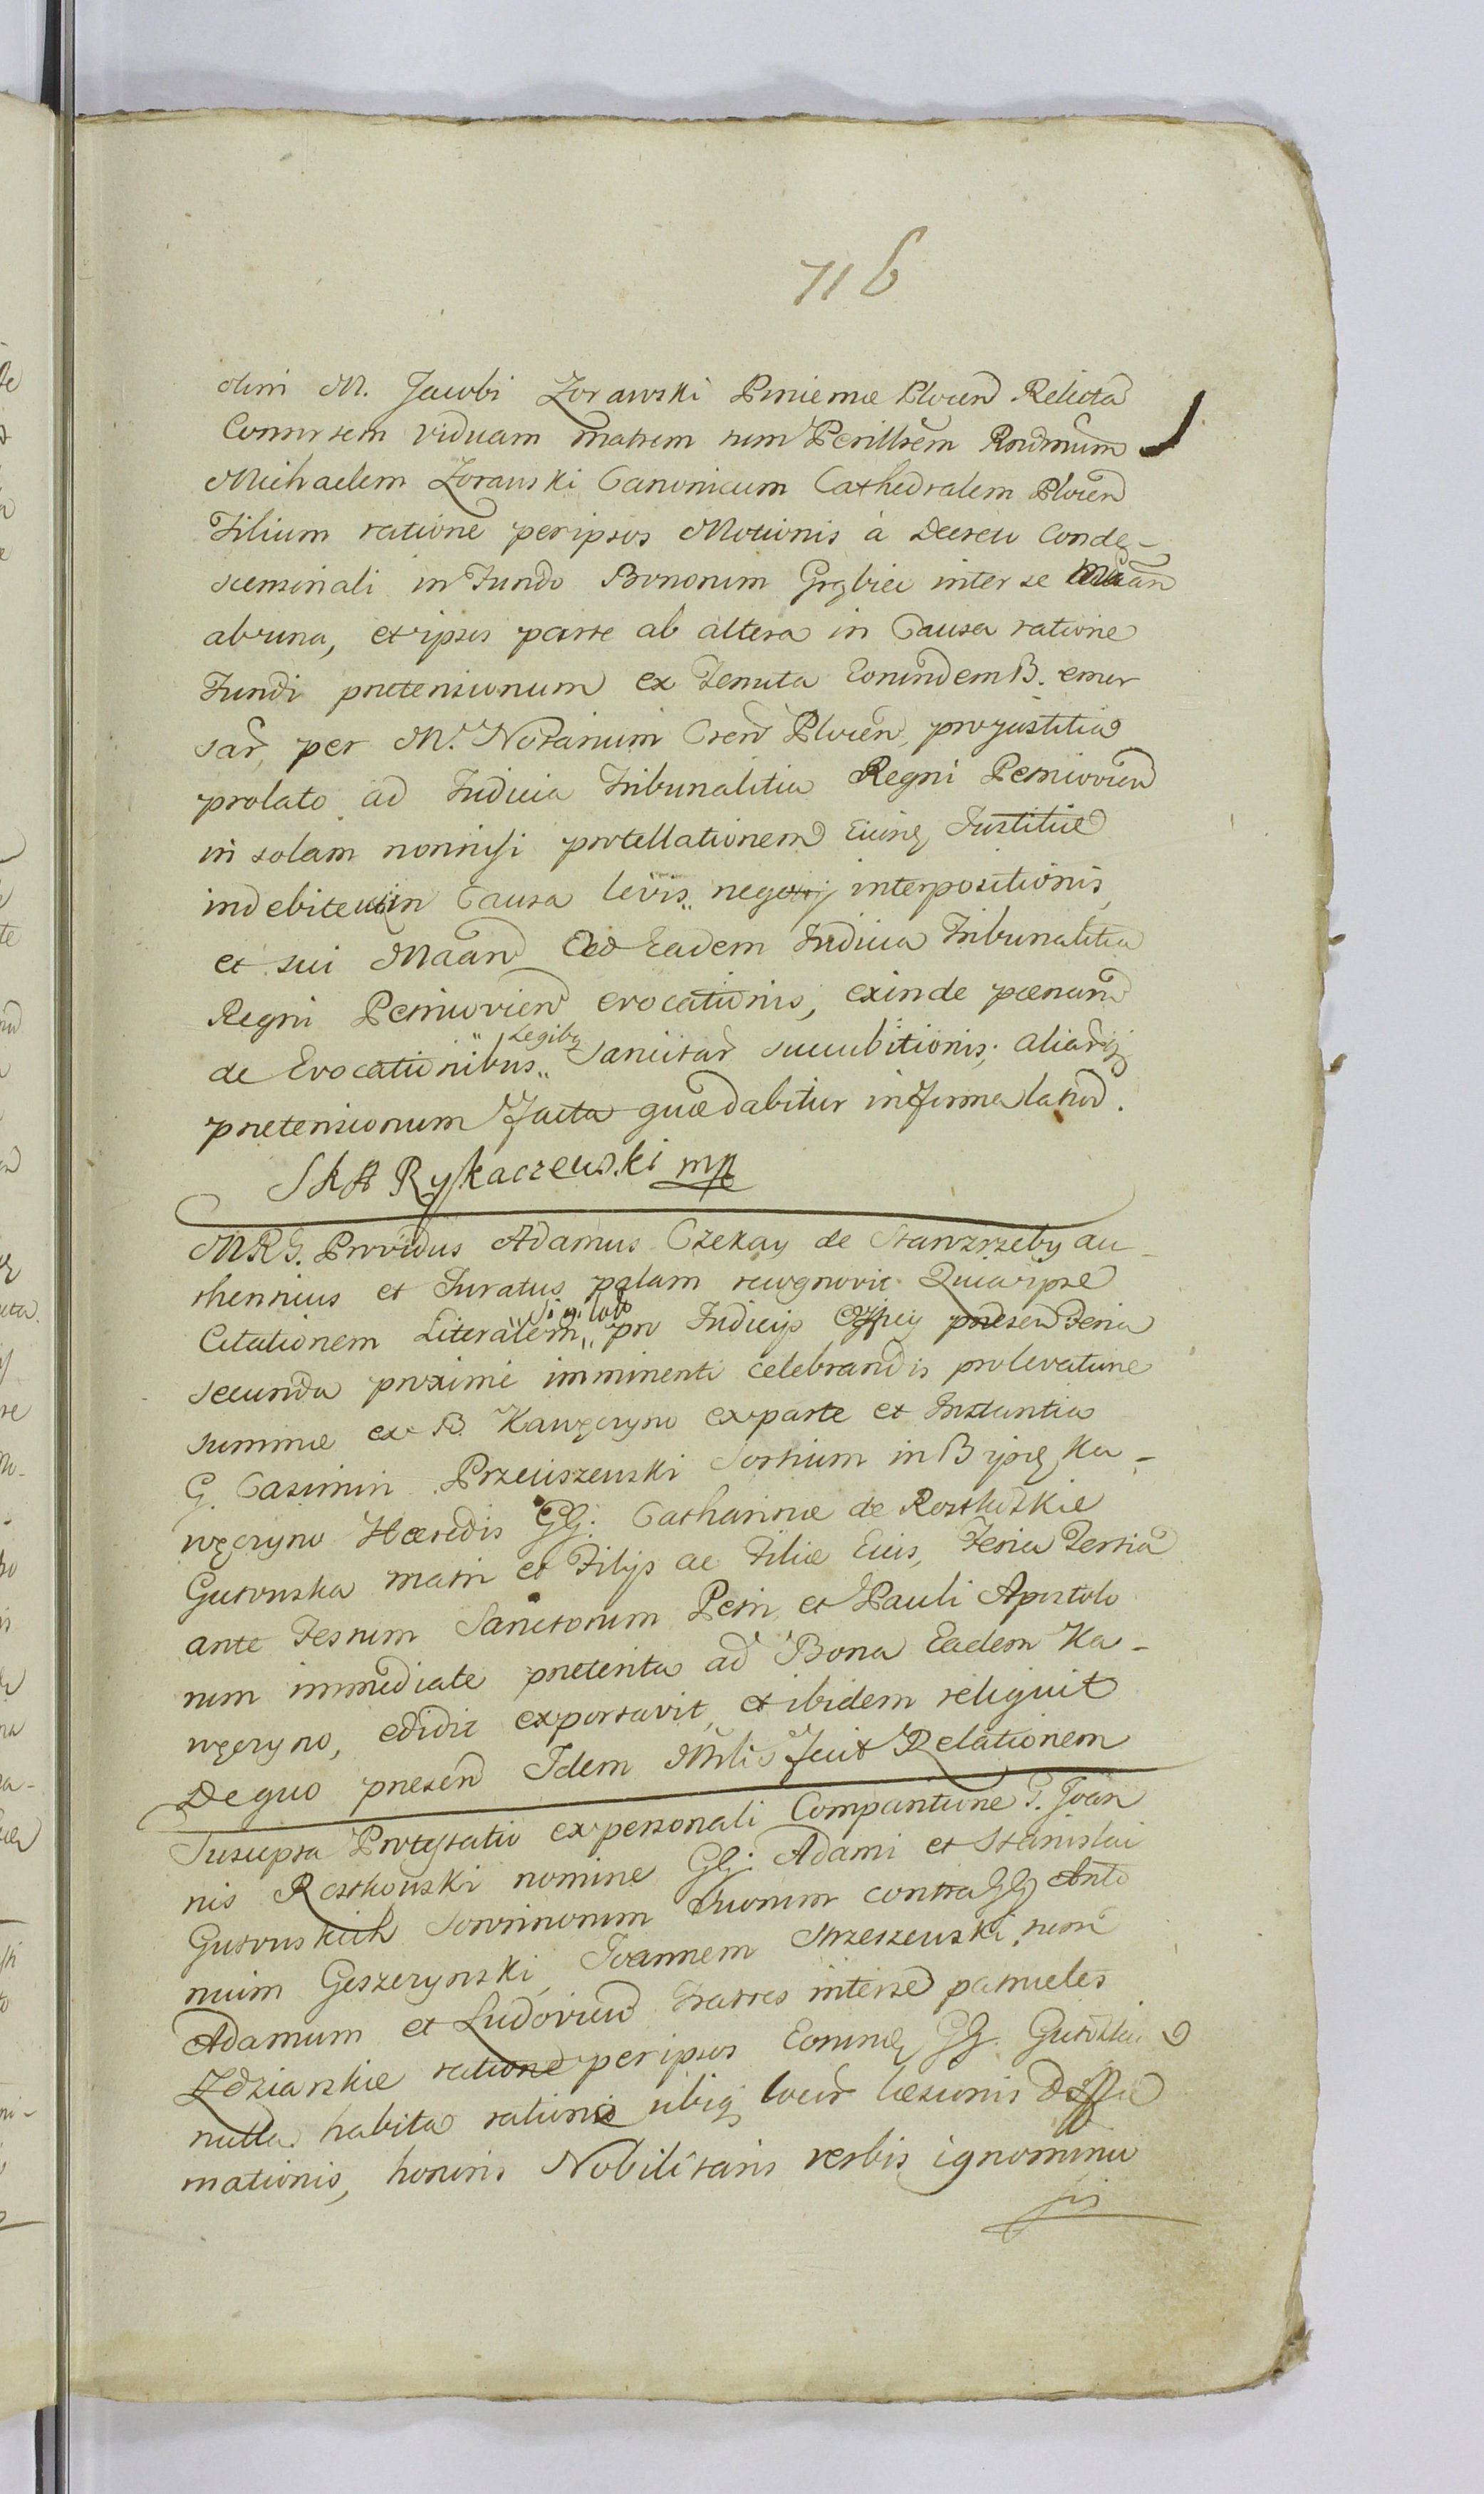 716
olim M. Jacobi Zorawski Pincernæ Plocen Relictã
Consortem viduam matrem tum Perillrem Rndmum
Michaelem Zorawski Canonicum Cathedralem Plocen
Filium ratione per ipsos Motionis à Decreto Conde-
scensionali in Fundo Bonorum Grąbiec inter se Maan
ab una, et ipsis parte ab altera in Causa ratione
Fundi prætensionum ex Tenuta Eorundem B. emer
sar, per M. Notarium Cren Plocen, pro justitia
prolato ad Judicia Tribunalitia Regni Petricovien
in solam nonnisi protellationem Eiusq Justitiæ
indebite in Causa levis negotij interpositionis,
et sui Maand ad Eadem Judicia Tribunalitia
Regni Petricovien evocationis, exinde pænarũ
de Evocationibus Legibq Sancitar succubitionis, aliarq
prætensionum facta quæ dabitur in forma latiod.
Rykaczewski mp
MRG. Providus Adamus Czekay de Starozrzeby au-
thenticus et Juratus palam recognovit Quia ipse
Citationem Literalem Sigillatã pro Judicijs Officij præsen Feria
secunda proxime imminenti celebrandis pro levatione
summæ ex B. Kawęczyno ex parte et Instantia
G. Casimiri Przeciszewski Sortium in B ijsdq Ka-
węczyno Hæredis GG: Catharinæ de Rostkoskie
Guroska matri et Filijs ac Filiæ Eius, Feria Tertia
ante Festum Sanctorum Petri et Pauli Apostolo
rum immediate præterita ad Bona Eadem Ka-
węczyno, edidit exportavit, et ibidem reliquit
De quo præsen Idem Mnlis fecit Relationem
Suscepta Protestatio ex personali Comparitione G. Joan
nis Rostkowski nomine GG: Adami et Stanislai
Guroskich Sororinorum Suorum contra GG Anto
nium Goszczynski, Joannem Strzeszewski, tum
Adamum et Ludovicũ Fratres inter se patrueles
Zdziarskie ratione per ipsos Eorundq GG. Guroskie
nulla habita rationis ubiq locor læsionis Diffa
mationis, honoris Nobilitaris verbis ignominio
sis